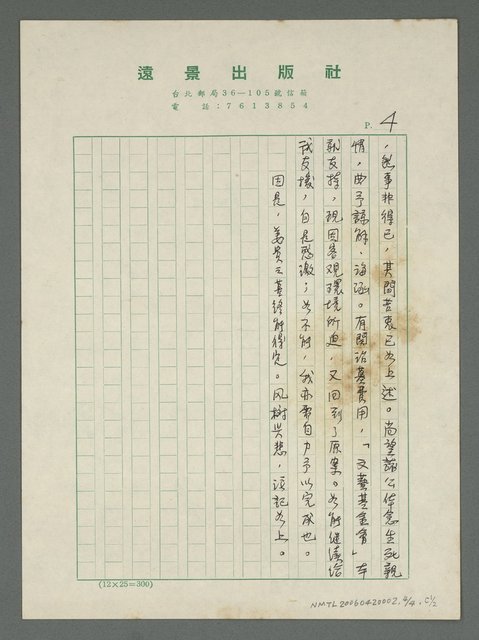 遠景出版社
台北郵局36—105號信箱
電話:7613854
P. 4
,然事非得已,其間苦衷已如上述。尚望諸公体念生死親
情,曲予諒解、海涵。有關治墓費用,「文藝基金會」本
説支持,現因客觀環境所迫,又回到了原案。如能繼續給
我支援,自是感激;如不能,我亦要自力予以完成也。
因是,姜貴之墓終能修定。風樹興悲,謹記如上。
(12×25=300)
NMTL20060420002, 4/4, C1/2